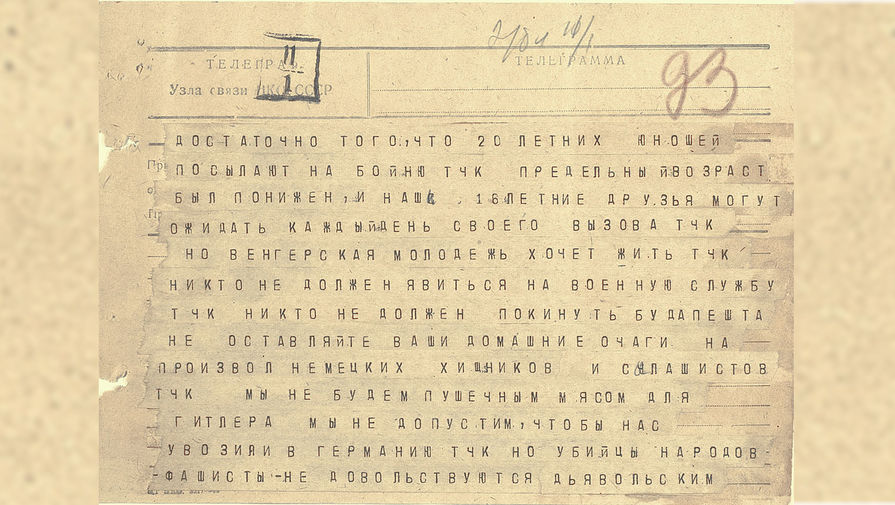 11
1
93
ТЕЛЕГРАММА
Узла связи НКО СССР
ДОСТАТОЧНО ТОГО,ЧТО 20 ЛЕТНИХ ЮНОШЕЙ
ПОСЫЛАЮТ НА БОЙНЮ ТЧК ПРЕДЕЛЬНЫЙВОЗРАСТ
БЫЛ ПОНИЖЕН,И НАШИ 16ЛЕТНИЕ ДРУЗЬЯ МОГУТ
ОЖИДАТЬ КАЖДЫЙДЕНЬ СВОЕГО ВЫЗОВА ТЧК
НО ВЕНГЕРСКАЯ МОЛОДЕЖЬ ХОЧЕТ ЖИТЬ ТЧК
НИКТО НЕ ДОЛЖЕН ЯВИТЬСЯ НА ВОЕННУЮ СЛУЖБУ
ТЧК НИКТО НЕ ДОЛЖЕН ПОКИНУТЬ БУДАПЕШТА
НЕ ОСТАВЛЯЙТЕ ВАШИ ДОМАШНИЕ ОЧАГИ НА
ПРОИЗВОЛ НЕМЕЦКИХ ХИЩНИКОВ И САЛАШИСТОВ
ТЧК МЫ НЕ БУДЕМ ПУШЕЧНЫМ МЯСОМ ДЛЯ
ГИТЛЕРА МЫ НЕ ДОПУСТИМ,ЧТОБЫ НАС
УВОЗИЛИ В ГЕРМАНИЮ ТЧК НО УБИЙЦЫ НАРОДОВ-
-ФАШИСТЫ-НЕ ДОВОЛЬСТВУЮТСЯ ДЬЯВОЛЬСКИМ